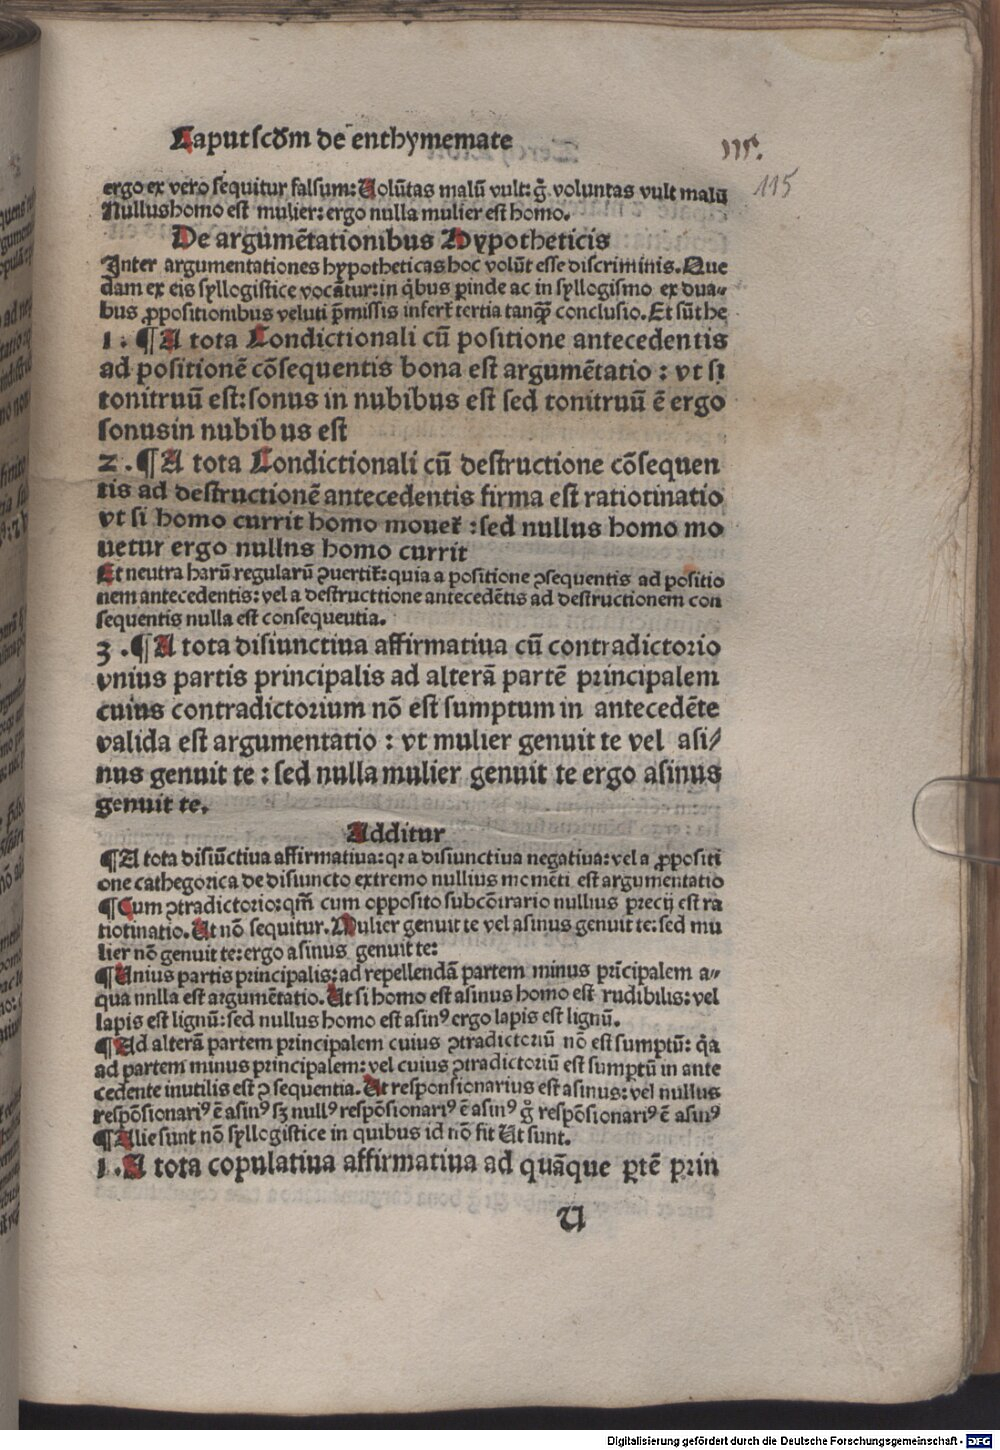 Caput scd̃m de enthymemate
115.
115
ergo ex vero sequitur falsum: Volūtas malū vult: g̃. voluntas vult malū
Nullus homo est mulier: ergo nulla mulier est homo.
De argumētationibus Hypotheticis
Inter argumentationes hypotheticas hoc volūt esse discriminis. Que
dam ex eis syllogistice vocātur: in q̄bus perinde ac in syllogismo ex dua⸗
bus ꝓpositionibus veluti p̄missis infert̄ tertia tanqꝫ conclusio. Et sūt he
1. ¶ A tota Condictionali cū positione antecedentis
ad positionē cōsequentis bona est argumētatio : vt si
tonitruū est: sonus in nubibus est sed tonitruū ē ergo
sonusin nubibus est
2. ¶ A tota Condictionali cū destructione cōsequen
tis ad destructionē antecedentis firma est ratiotinatio
vt si homo currit homo mouet̄ : sed nullus homo mo
uetur ergo nullns homo currit
Et neutra harū regularū ꝯuertit̄: quia a positione ꝯsequentis ad positio
nem antecedentis: vel a destructtione antecedētis ad destructionem con
sequentis nulla est consequeutia.
3. ¶ A tota disiunctiua affirmatiua cū contradictorio
vnius partis principalis ad alterā partē principalem
cuius contradictorium nō est sumptum in antecedēte
valida est argumentatio : vt mulier genuit te vel asi⸗
nus genuit te : sed nulla mulier genuit te ergo asinus
genuit te.
Additur
¶ A tota disiūctiua affirmatiua: qꝛ a disiunctiua negatiua: vel a ꝓpositi
one cathegorica de disiuncto extremo nullius momēti est argumentatio
¶ Cum ꝯtradictorio: qm̄ cum opposito subcōtrario nullius precij est ra
tiotinatio. Ut nō sequitur. Mulier genuit te vel asinus genuit te: sed mu
lier nō genuit te: ergo asinus genuit te:
¶ Unius partis principalis: ad repellendā partem minus prīcipalem a⸗
qua nnlla est argumētatio. Ut si homo est asinus homo est rudibilis: vel
lapis est lignū: sed nullus homo est asinꝰ ergo lapis est lignū.
¶ Ad alterā partem principalem cuius ꝯtradictoriū nō est sumptū: q̄a
ad partem minus principalem: vel cuius ꝯtradictoriū est sumptū in ante
cedente inutilis est ꝯsequentia. Ut responsionarius est asinus: vel nullus
respōsionariꝰ ē asinꝰ sꝫ nullꝰ respōsionariꝰ ē asinꝰ g̊ respōsionariꝰ ē asinꝰ
¶ Alie sunt nō syllogistice in quibus id nō fit Ut sunt.
1. A tota copulatiua affirmatiua ad quāque ꝑtē prin
U
Digitalisierung gefördert durch die Deutsche Forschungsgemeinschaft - DFG